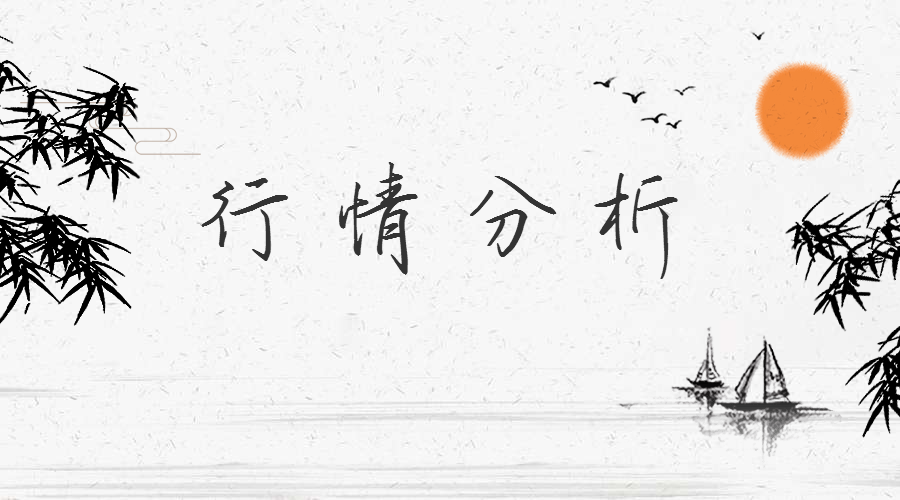 行情分析